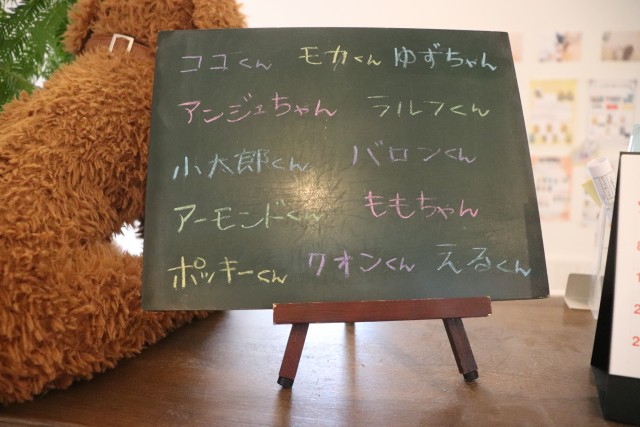 ココくん モカくん ゆずちゃん
アンジェちゃん ラルフくん
小太郎くん バロンくん
アーモンドくん ももちゃん
ポッキーくん クオンくん えるくん